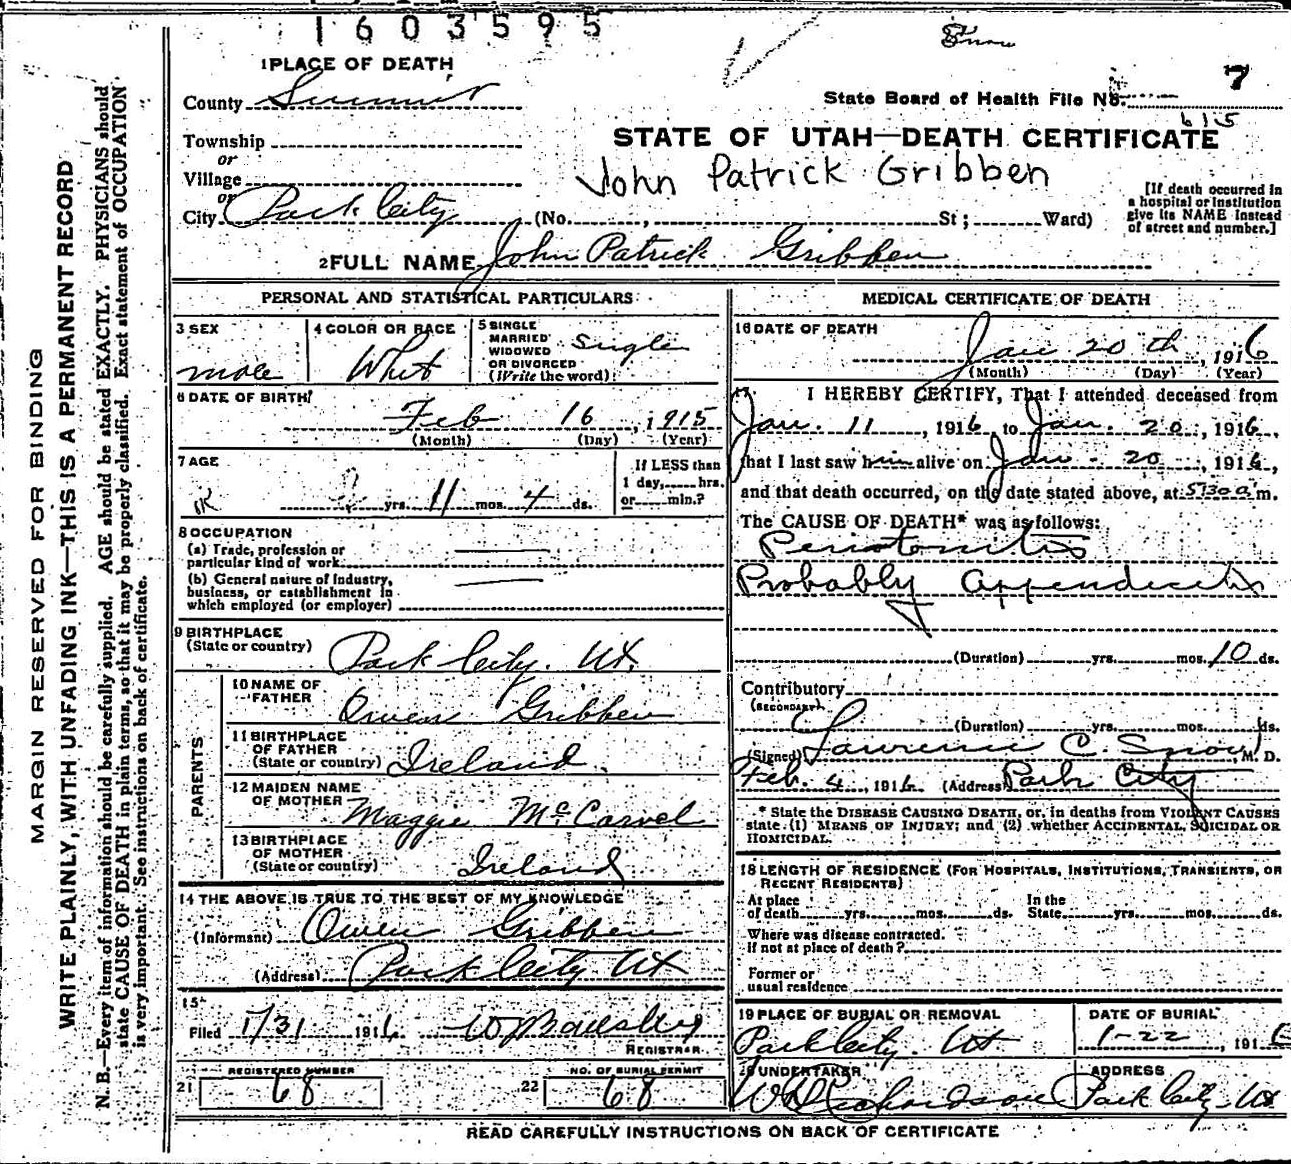 1603595
Snow
1 PLACE OF DEATH
7
County Summit
State Board of Health File No.
615
Township
STATE OF UTAH—DEATH CERTIFICATE
or
Village
John Patrick Gribben
or
City Park City (No. , St ; Ward)
[If death occurred in
a hospital or institution
give its NAME instead
of street and number.]
2 FULL NAME John Patrick Gribben
PERSONAL AND STATISTICAL PARTICULARS
3 SEX
male
4 COLOR OR RACE
Whit
5 SINGLE
MARRIED
WIDOWED
OR DIVORCED
(Write the word)
Single
6 DATE OF BIRTH
Feb 16, 1915
(Month) (Day) (Year)
7 AGE
yrs. 11 mos. 4 ds.
If LESS than
1 day, hrs.
or min.?
8 OCCUPATION
(a) Trade, profession or
particular kind of work
(b) General nature of Industry,
business, or establishment in
which employed (or employer)
9 BIRTHPLACE
(State or country) Park City. Ut.
PARENTS
10 NAME OF
FATHER
Owen Gribben
11 BIRTHPLACE
OF FATHER
(State or country) Ireland.
12 MAIDEN NAME
OF MOTHER Maggie McCarvel
13 BIRTHPLACE
OF MOTHER
(State or country) Ireland
14 THE ABOVE IS TRUE TO THE BEST OF MY KNOWLEDGE
(Informant) Owen Gribben
(Address) Park City Ut
15
Filed 1/31 1916
REGISTRAR
21 REGISTERED NUMBER
68
22 NO. OF BURIAL PERMIT
68
MEDICAL CERTIFICATE OF DEATH
16 DATE OF DEATH
Jan 20th, 1916
(Month) (Day) (Year)
17 I HEREBY CERTIFY, That I attended deceased from
Jan. 11, 1916, to Jan. 20, 1916,
that I last saw him alive on Jan. 20, 1916,
and that death occurred, on the date stated above, at 5:30 a m.
The CAUSE OF DEATH* was as follows:
Peritonitis
Probably Appendicitis
(Duration) yrs. mos. 10 ds.
Contributory
(SECONDARY)
(Duration) yrs. mos. ds.
(Signed) Lawrence C. Snow, M. D.
Feb. 4, 1916 (Address) Park City
* State the DISEASE CAUSING DEATH, or, in deaths from VIOLENT CAUSES
state (1) MEANS OF INJURY; and (2) whether ACCIDENTAL, SUICIDAL OR
HOMICIDAL.
18 LENGTH OF RESIDENCE (FOR HOSPITALS, INSTITUTIONS, TRANSIENTS, OR
RECENT RESIDENTS)
At place
of death yrs. mos. ds.
In the
State yrs. mos. ds.
Where was disease contracted.
If not at place of death?
Former or
usual residence
19 PLACE OF BURIAL OR REMOVAL
Park City. Ut
DATE OF BURIAL
1-22, 1916
20 UNDERTAKER
Richardson
ADDRESS
Park City - Ut
READ CAREFULLY INSTRUCTIONS ON BACK OF CERTIFICATE
MARGIN RESERVED FOR BINDING
WRITE PLAINLY, WITH UNFADING INK—THIS IS A PERMANENT RECORD
N. B.—Every item of information should be carefully supplied. AGE should be stated EXACTLY. PHYSICIANS should
state CAUSE OF DEATH in plain terms, so that it may be properly classified. Exact statement of OCCUPATION
is very important. See instructions on back of certificate.